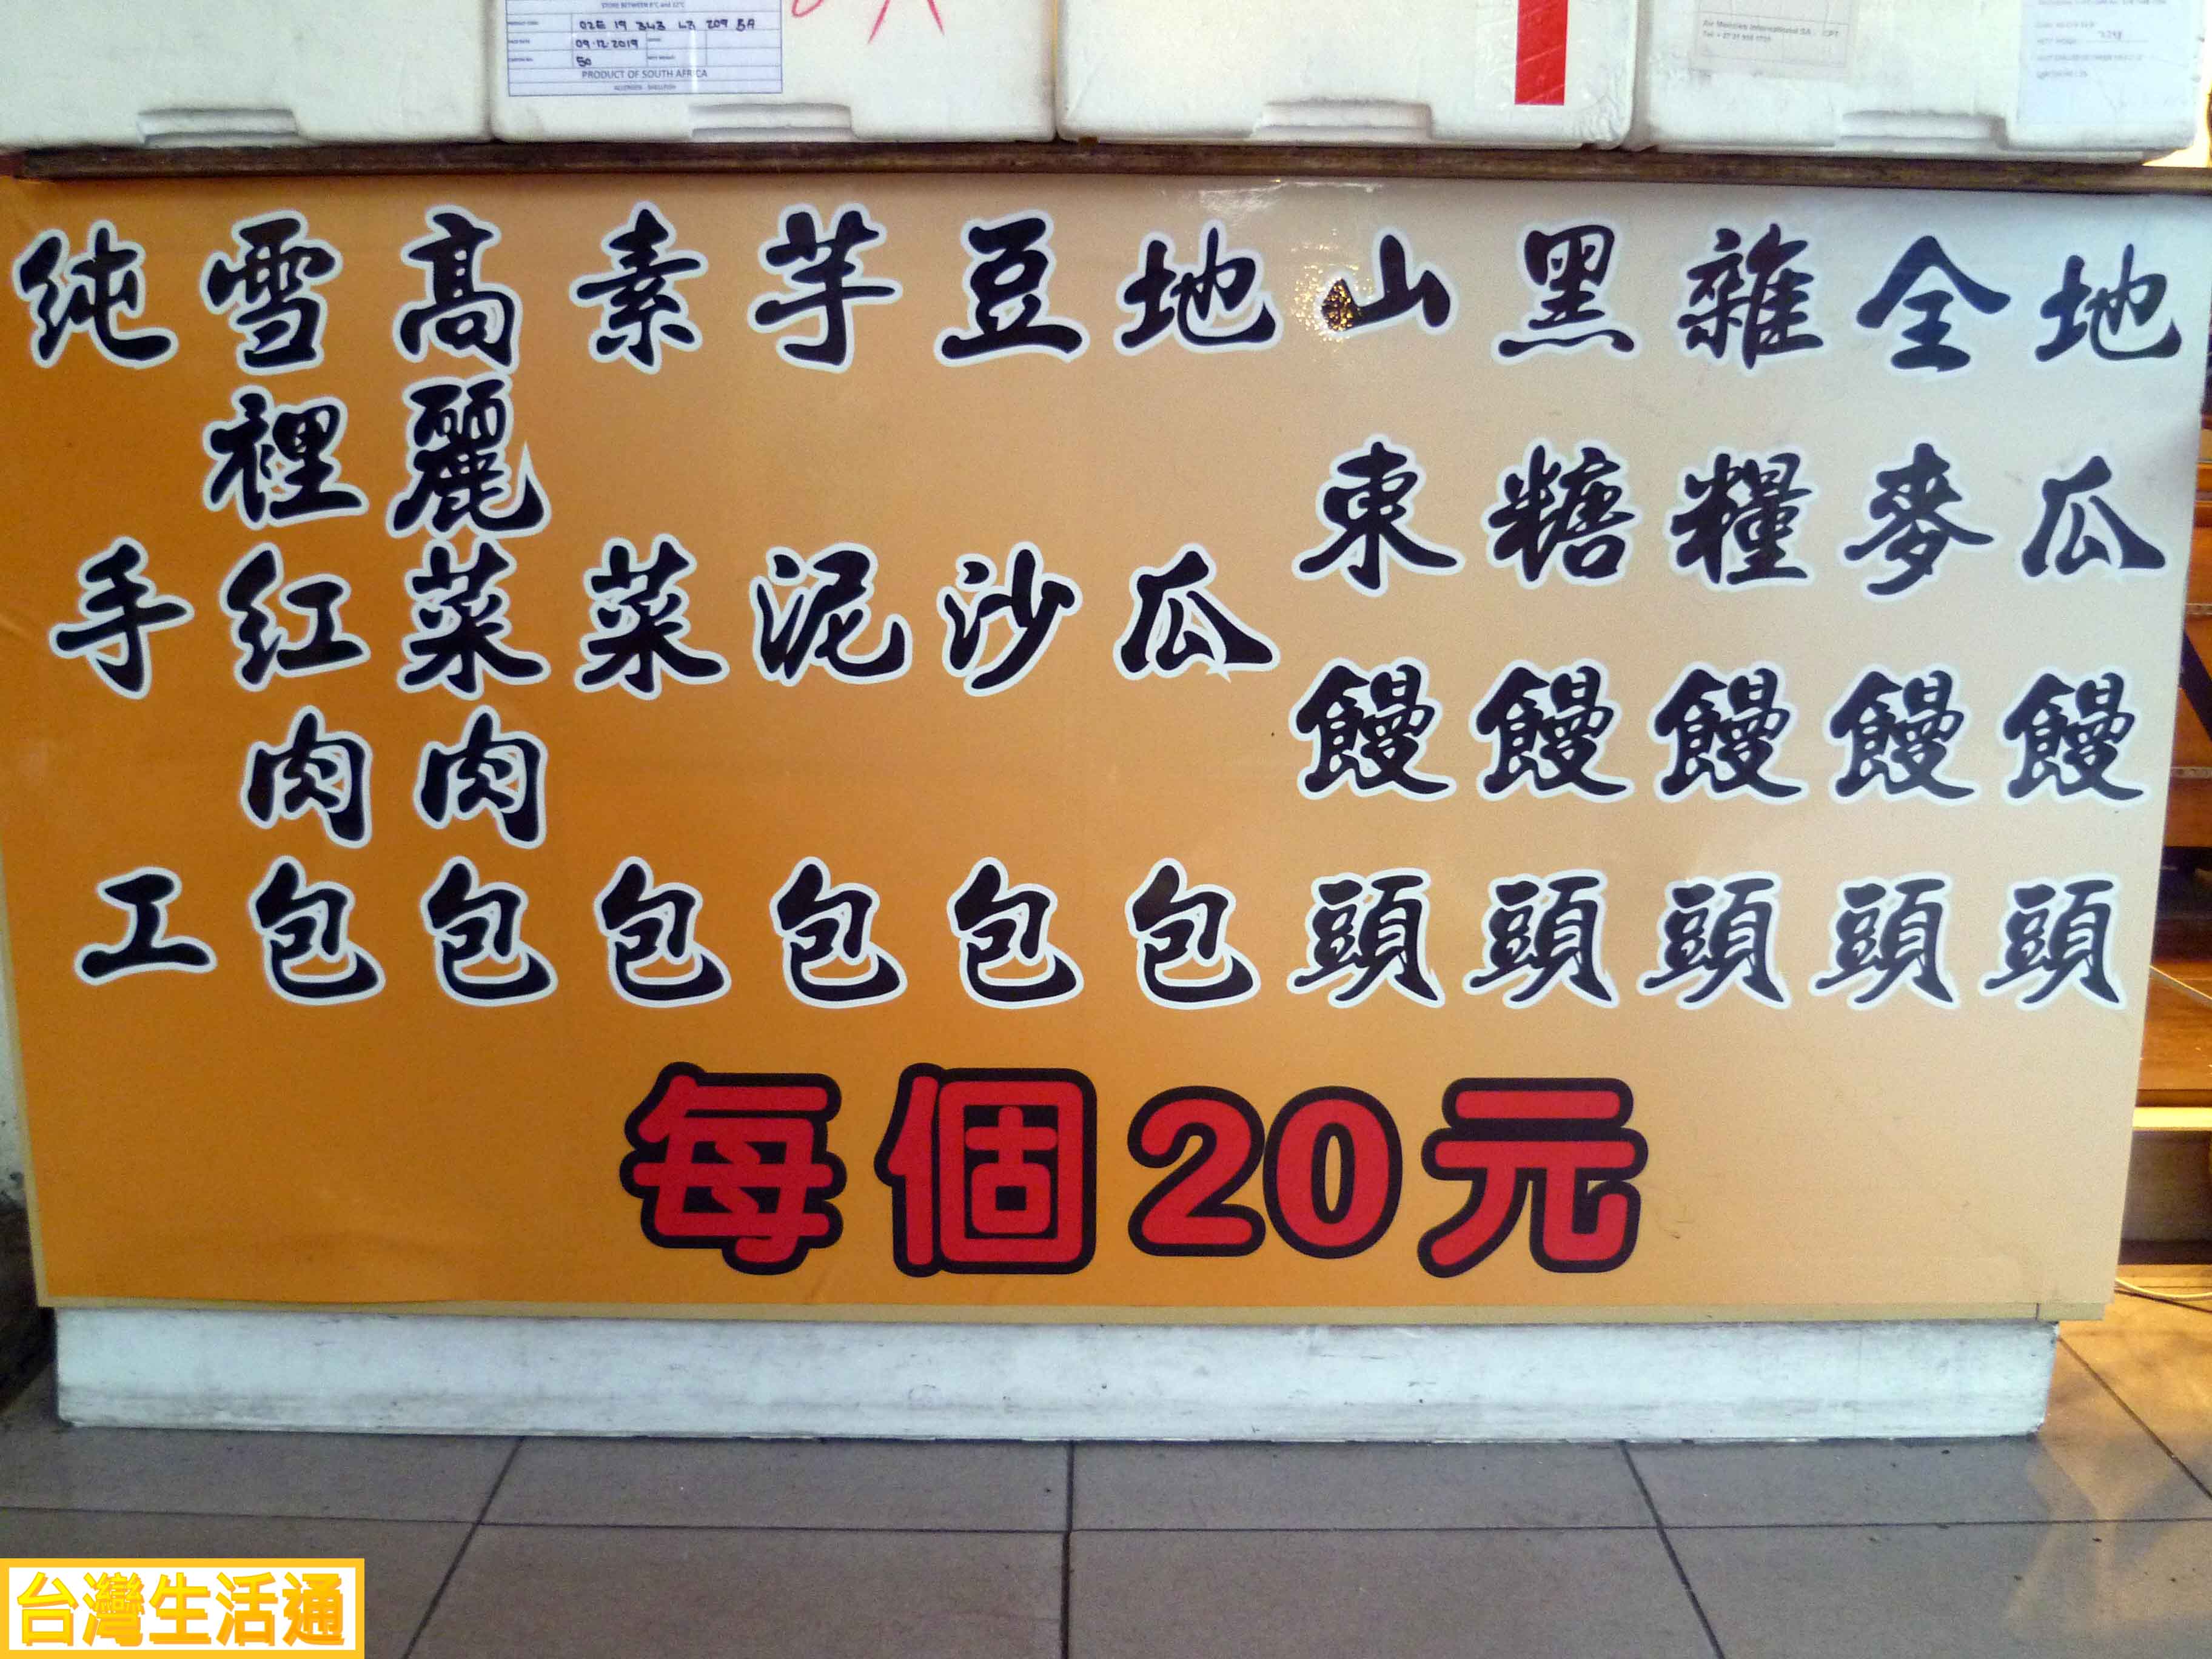 STORE BETWEEN 8°C and 12°C
02E 19 343 L3 209 5A
09.12.2019
50
PRODUCT OF SOUTH AFRICA
ALLERGEN - SHELLFISH
地瓜饅頭
全麥饅頭
雜糧饅頭
黑糖饅頭
山東饅頭
地瓜包
豆沙包
芋泥包
素菜包
高麗菜肉包
雪裡紅肉包
純手工
每個20元
台灣生活通